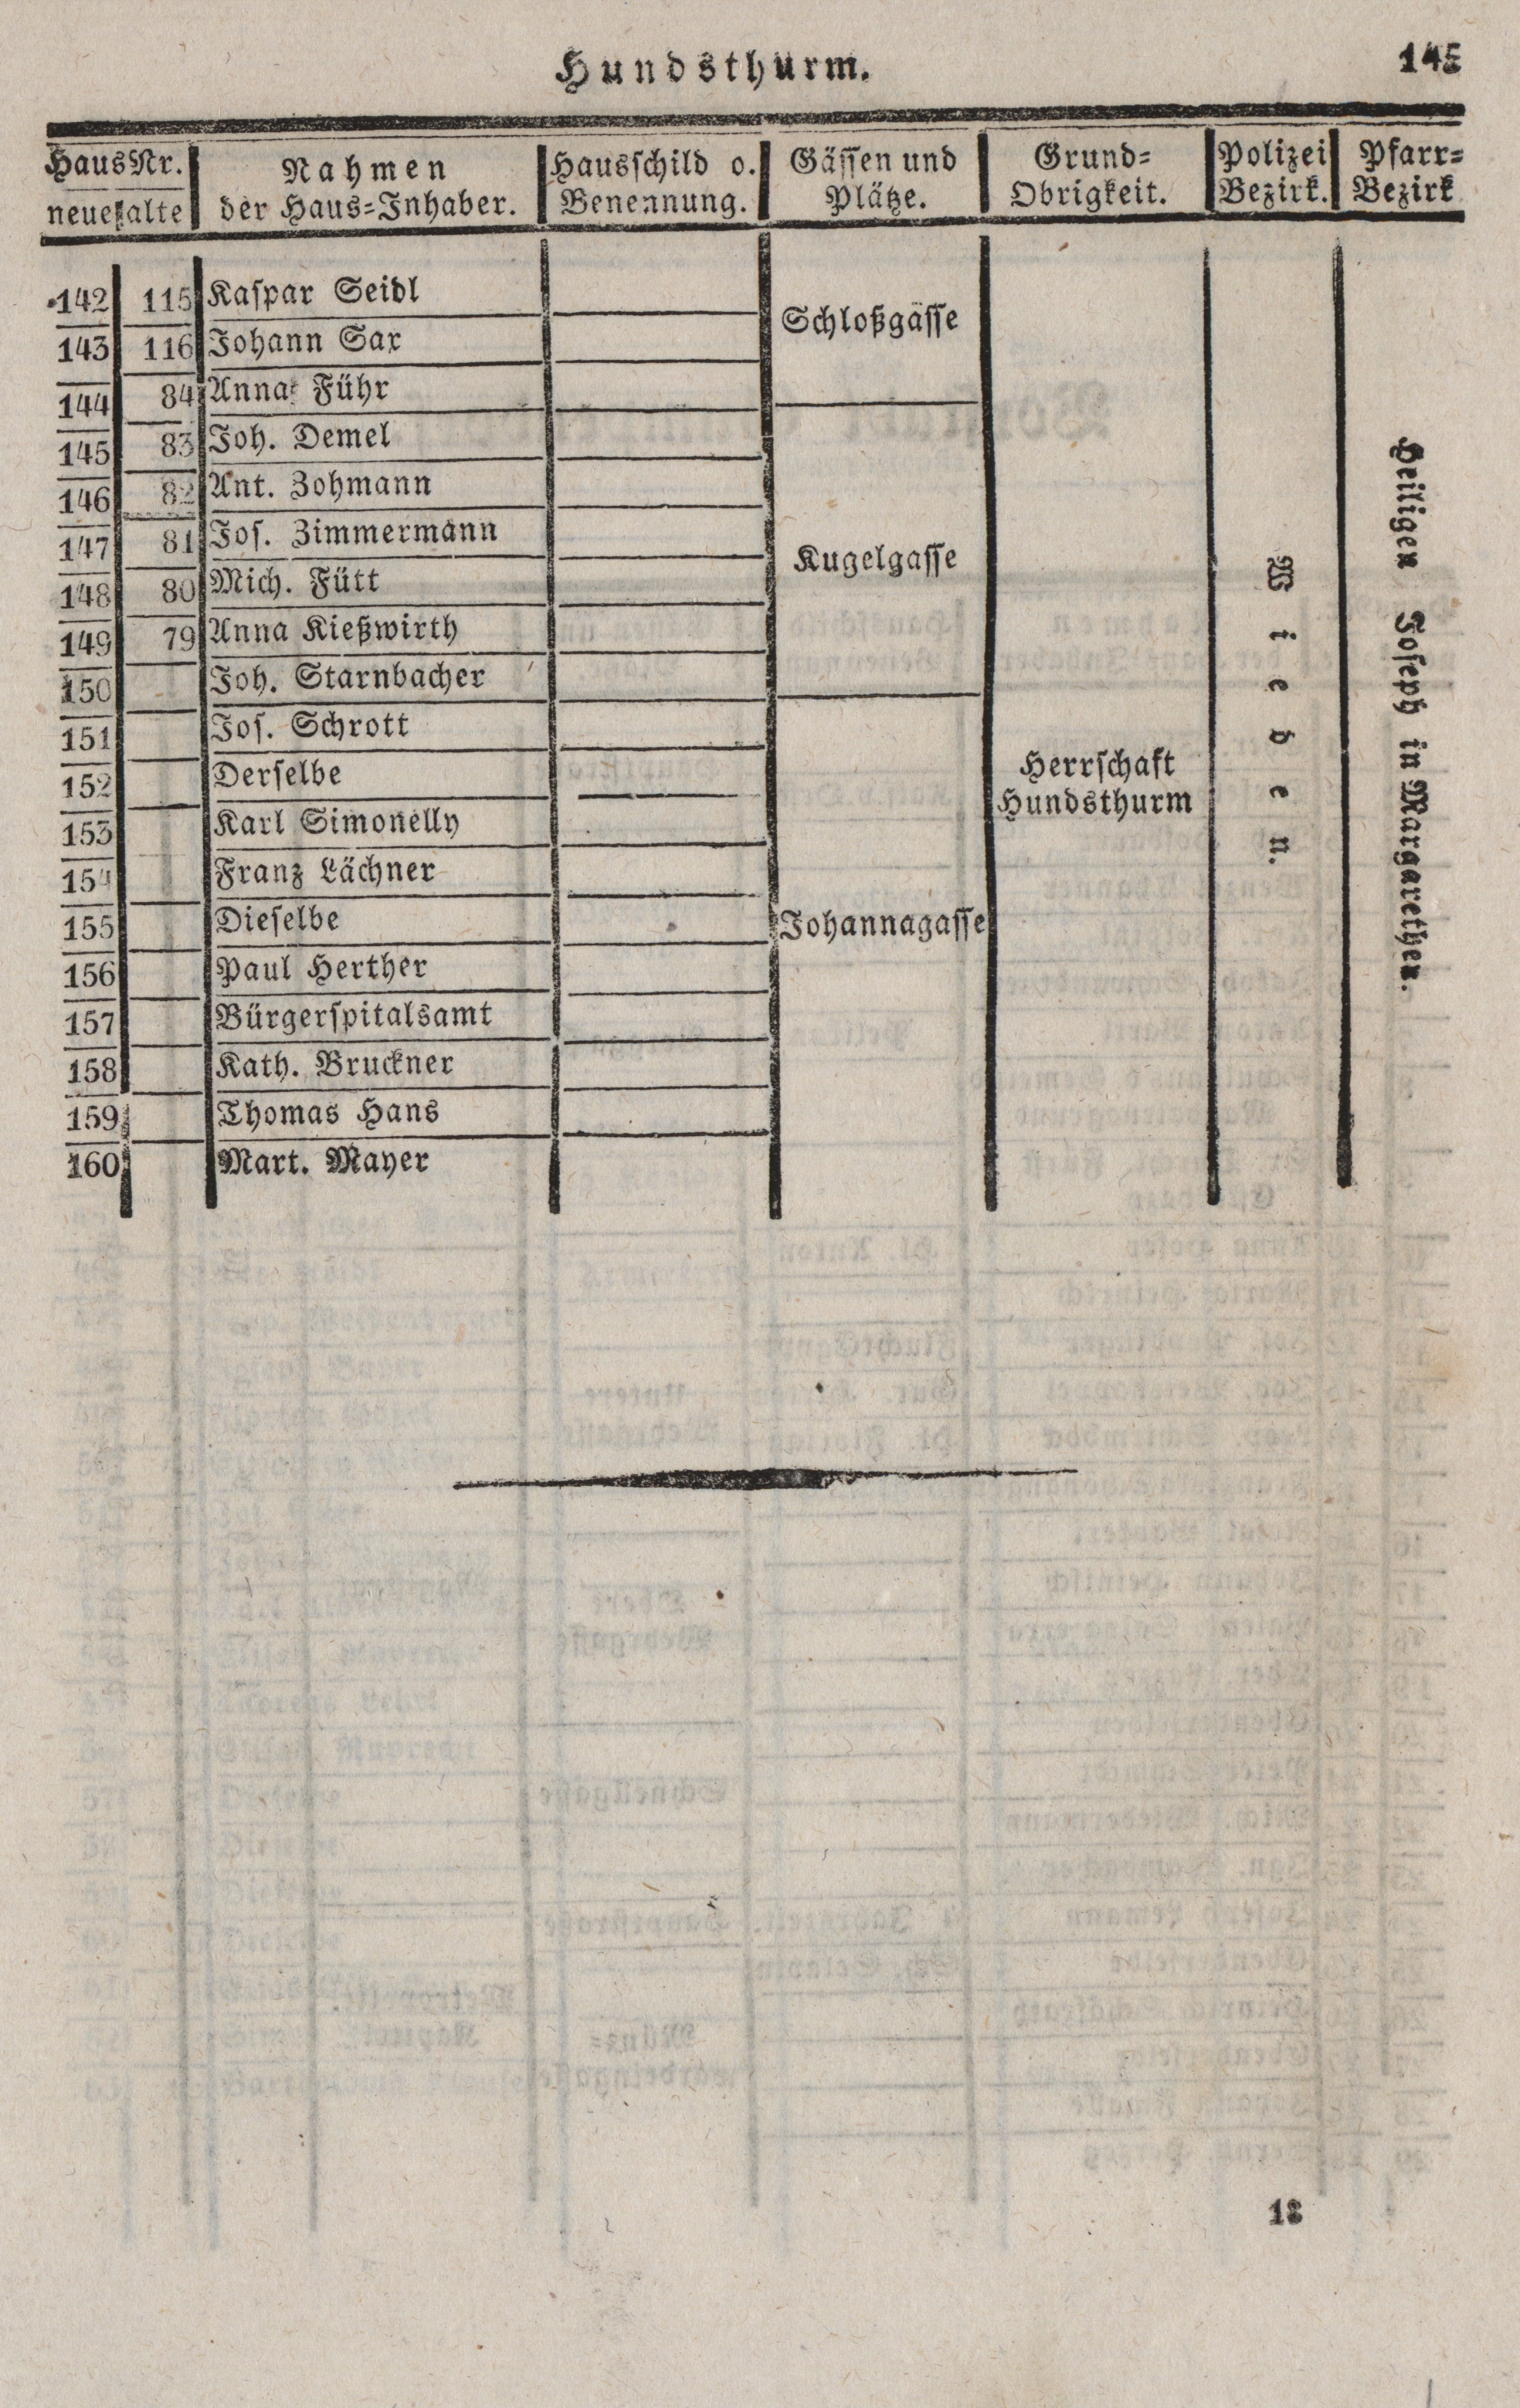 Hundsthurm. 145
Haus Nr. Nahmen Hausschild o. Gässen und Grund= Polizei Pfarr=
neue alte der Haus=Inhaber. Benennung. Plätze. Obrigkeit. Bezirk. Bezirk
142 115 Kaspar Seidl
Schloßgasse
143 116 Johann Sax
144 84 Anna Führ
145 83 Joh. Demel
146 82 Ant. Zohmann
147 81 Jos. Zimmermann
Kugelgasse
148 80 Mich. Fütt
149 79 Anna Kießwirth
150 Joh. Starnbacher
151 Jos. Schrott
152 Derselbe
Herrschaft
Hundsthurm
153 Karl Simonelly
154 Franz Lächner
155 Dieselbe
Johannagasse
156 Paul Herther
157 Bürgerspitalsamt
158 Kath. Bruckner
159 Thomas Hans
160 Mart. Mayer
Wieden.
Heiligen Joseph in Margarethen.
18